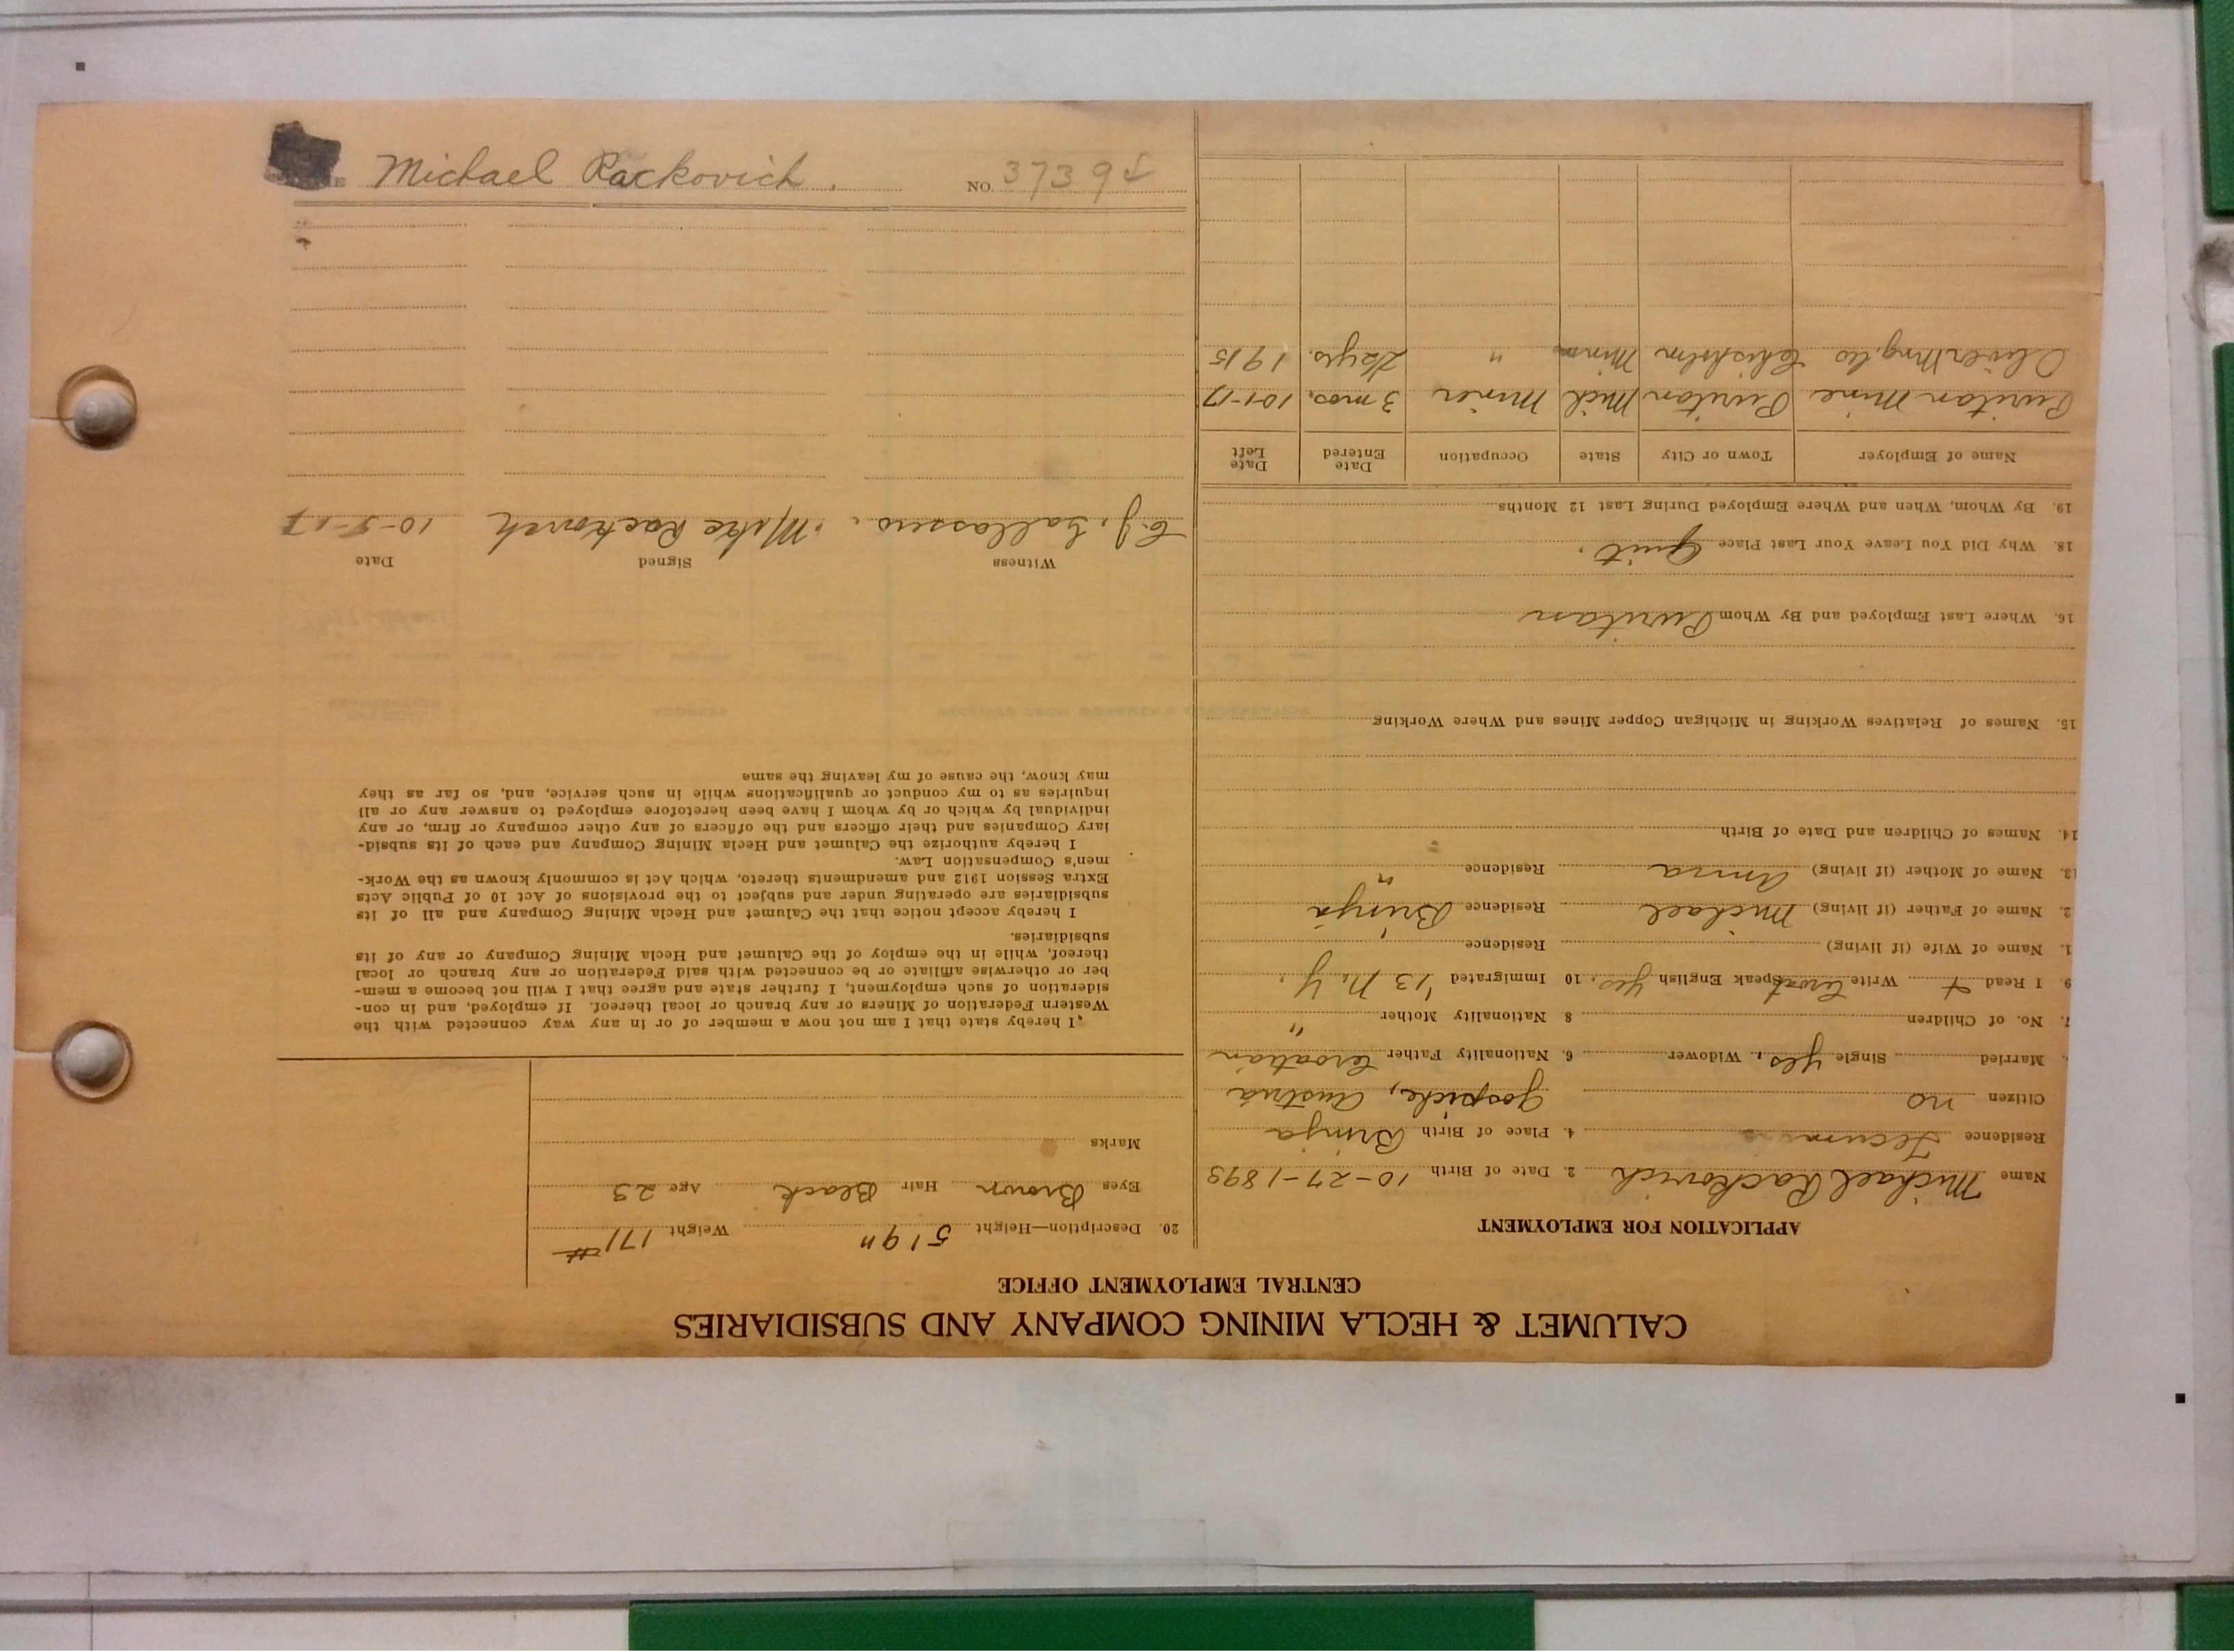 CALUMET & HECLA MINING COMPANY AND SUBSIDIARIES
CENTRAL EMPLOYMENT OFFICE
APPLICATION FOR EMPLOYMENT
Name Michael Rackovich 2. Date of Birth 10-27-1893
Residence 4. Place of Birth Brinja
Citizen no Gospich, Austria
Married Single yes, Widower 6. Nationality Father Croatian
7. No. of Children 8 Nationality Mother "
9. I Read + Write Croat Speak English yes. 10 Immigrated '13 N.Y.
1. Name of Wife (if living) Residence
2. Name of Father (if living) Michael Residence Brinja
13. Name of Mother (if living) Anna Residence "
14. Names of Children and Date of Birth
15. Names of Relatives Working in Michigan Copper Mines and Where Working
16. Where Last Employed and By Whom Puritan
18. Why Did You Leave Your Last Place Quit.
19. By Whom, When and Where Employed During Last 12 Months
Name of Employer Town or City State Occupation Date Entered Date Left
Puritan Mine Puritan Mich Miner 3 mos. 10-1-17
Oliver Mng. Co Chisholm Minn " 2 yrs. 1915
20. Description—Height 5' 9" Weight 171#
Eyes Brown Hair Black Age 23
Marks
I hereby state that I am not now a member of or in any way connected with the
Western Federation of Miners or any branch or local thereof. If employed, and in con-
sideration of such employment, I further state and agree that I will not become a mem-
ber or otherwise affiliate or be connected with said Federation or any branch or local
thereof, while in the employ of the Calumet and Hecla Mining Company or any of its
subsidiaries.
I hereby accept notice that the Calumet and Hecla Mining Company and all of its
subsidiaries are operating under and subject to the provisions of Act 10 of Public Acts
Extra Session 1912 and amendments thereto, which Act is commonly known as the Work-
men's Compensation Law.
I hereby authorize the Calumet and Hecla Mining Company and each of its subsid-
iary Companies and their officers and the officers of any other company or firm, or any
individual by which or by whom I have been heretofore employed to answer any or all
inquiries as to my conduct or qualifications while in such service, and, so far as they
may know, the cause of my leaving the same
Witness Signed Date
Mike Rackovich 10-5-17
Michael Rackovich. NO. 3739